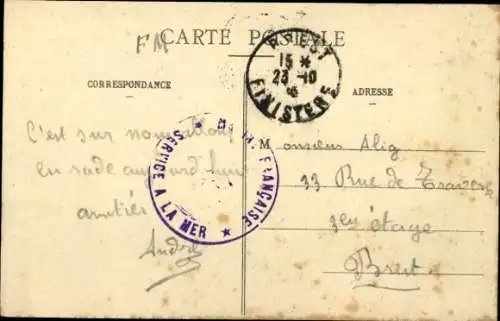 FM
CARTE POSTALE
BREST
15 *
23 -10
FINISTERE
CORRESPONDANCE
ADRESSE
C'est sur
en rade aujourd'hui
amitiés
André
FRANÇAISE
SERVICE A LA MER
Monsieur Alig
33 Rue de Traverse
étage
Brest